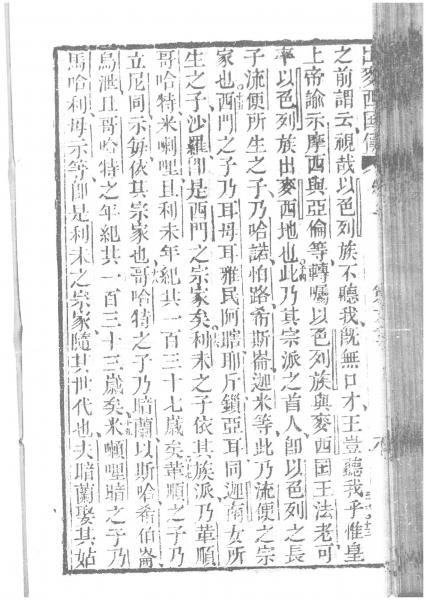 出麥西国傳
之前謂云視哉以色列族不聽我旣無口才王豈聽我乎惟皇
上帝諭示摩西與亞倫等轉囑以色列族與麥西国王法老可
率以色列族出麥西地也此乃其宗派之首人卽以色列之長
子流便所生之子乃哈諾怕路希斯崙迦米等此乃流便之宗
家也西門之子乃耳母耳雅民阿瞎耶斤鎖亞耳同迦南女所
生之子沙羅卽是西門之宗家矣利未之子依其族派乃革順
哥哈特米喇哩且利未年紀共一百三十七歲矣革順之子乃
立尼同示每依其宗家也哥哈特之子乃暗蘭以斯哈希伯崙
烏泄且哥哈特之年紀共一百三十三歲矣米喇哩之子乃
馬哈利母示等卽是利未之宗家隨其世代也夫暗蘭娶其姑